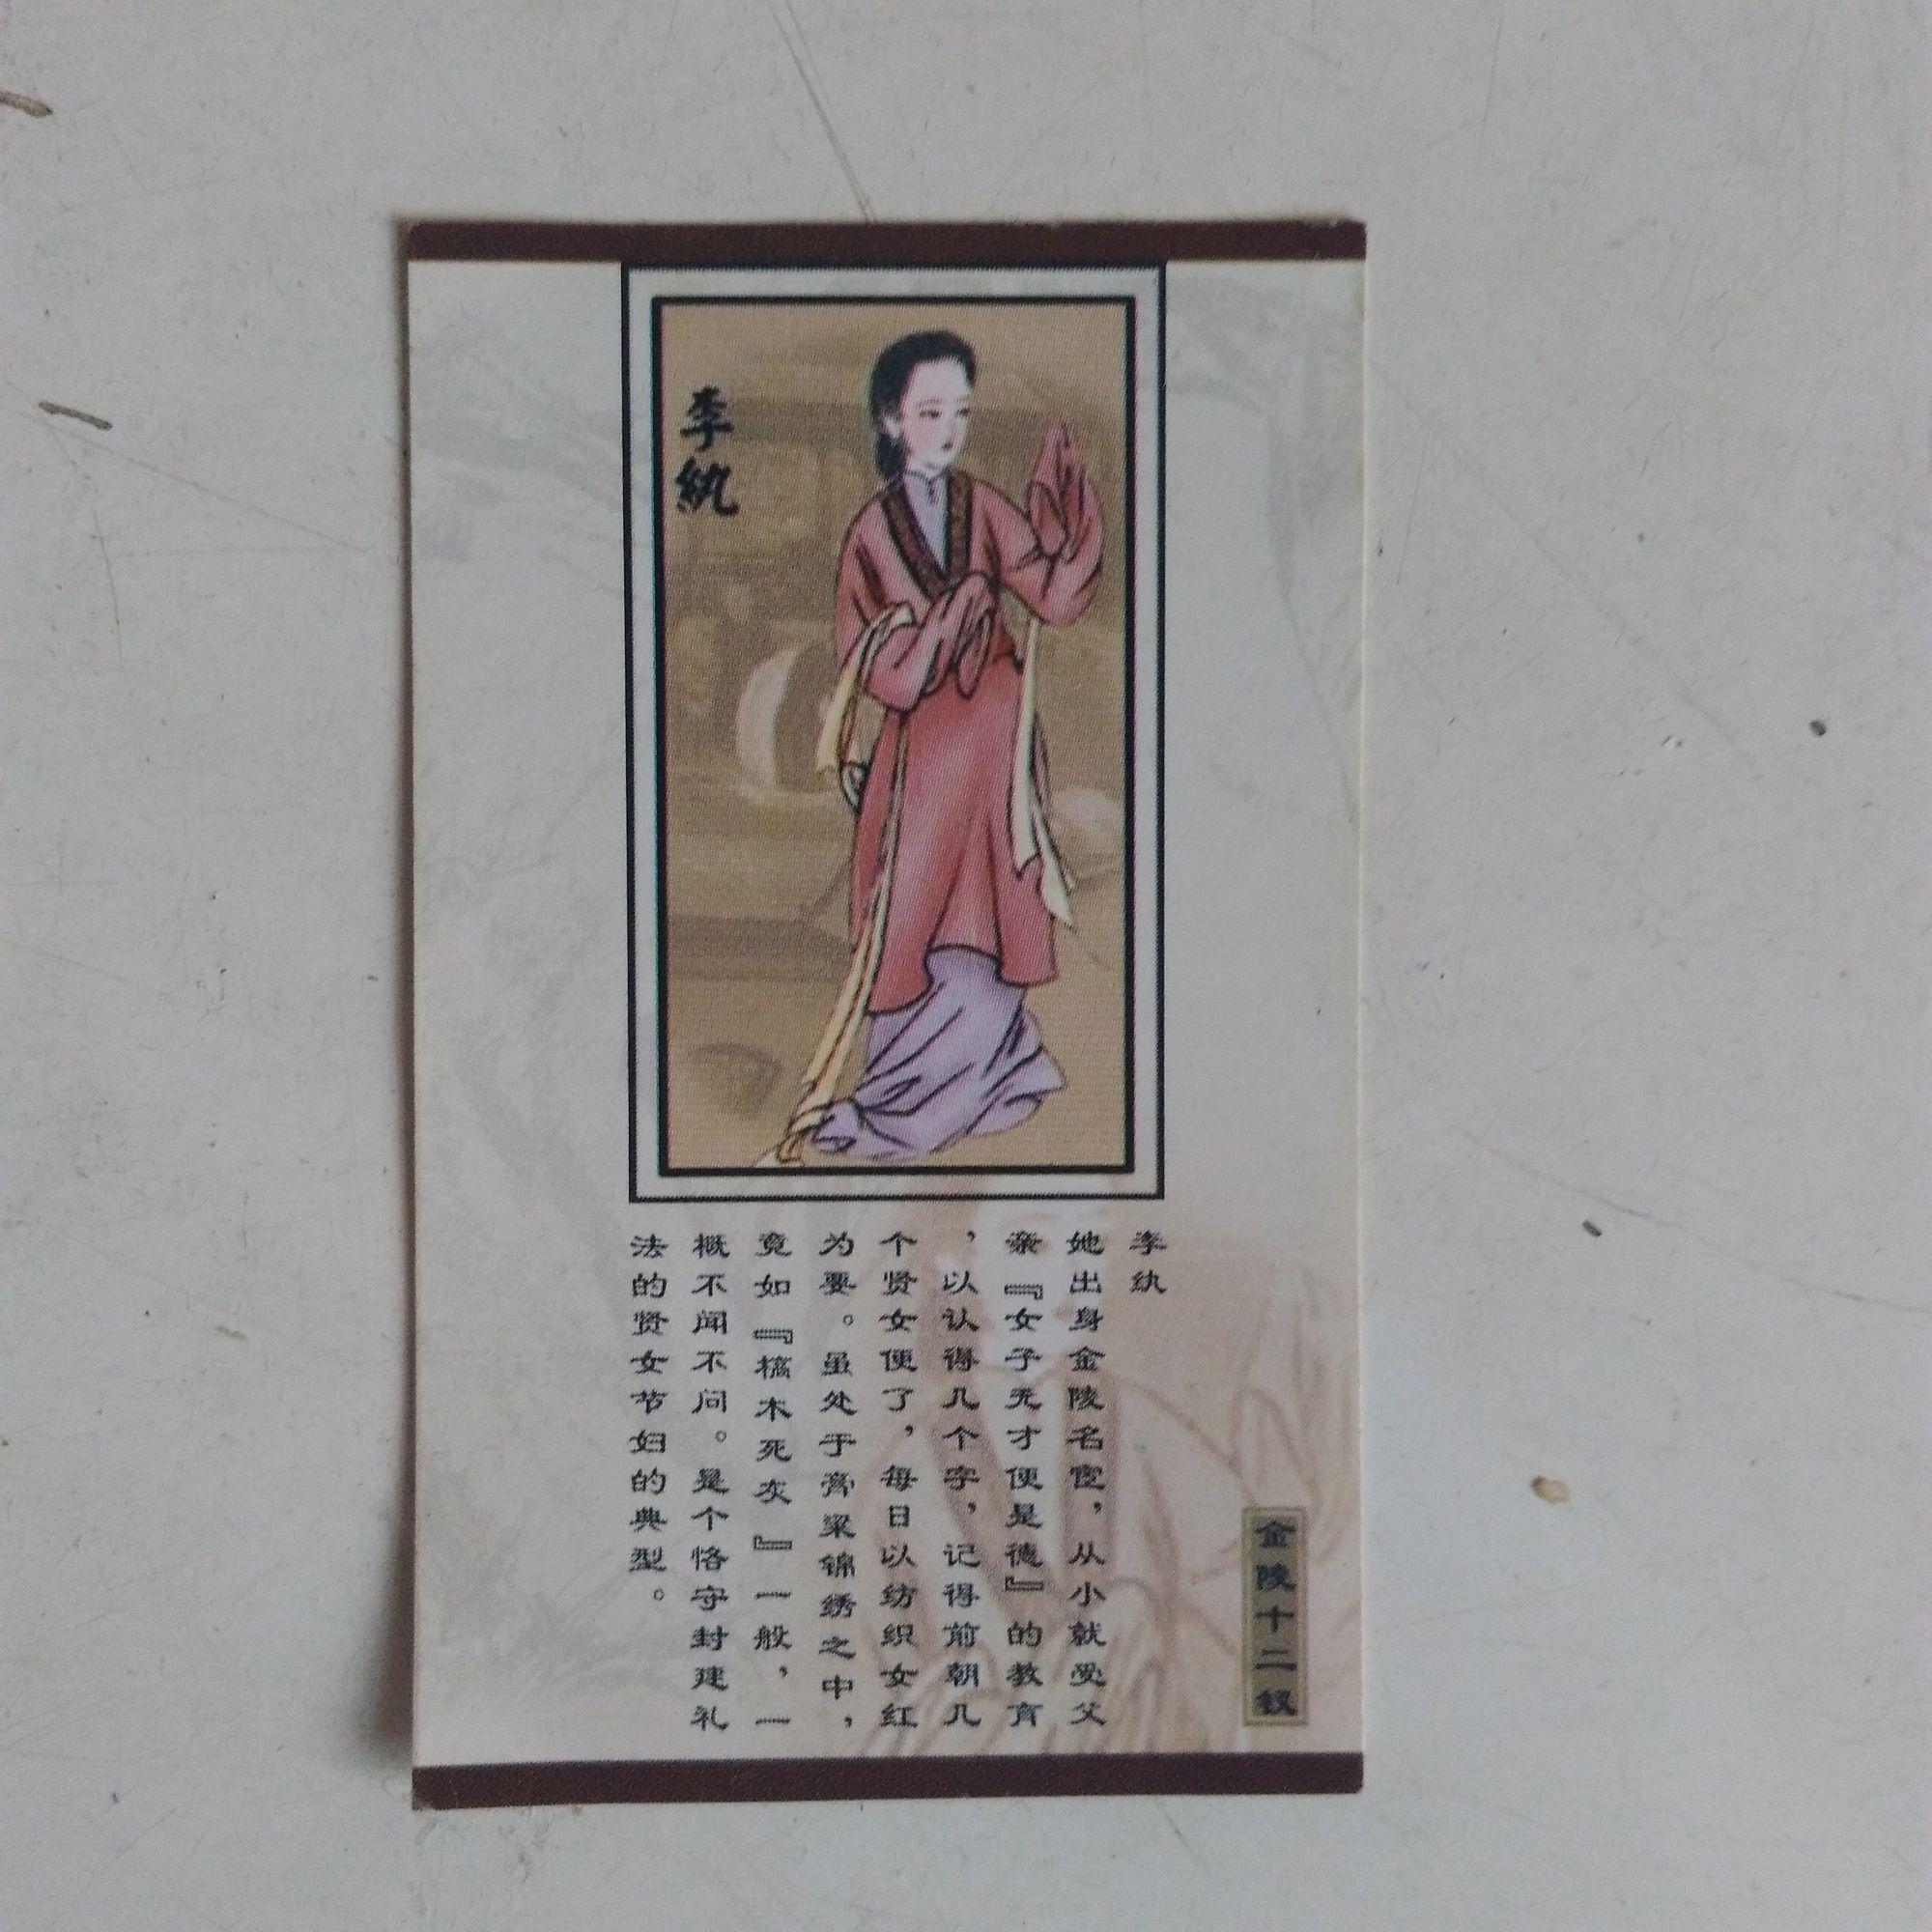 李紈
金陵十二钗
李纨
她出身金陵名宦，从小就受父
亲『女子无才便是德』的教育
，以认得几个字，记得前朝几
个贤女便了，每日以纺织女红
为要。虽处于膏粱锦绣之中，
竟如『槁木死灰』一般，一
概不闻不问。是个恪守封建礼
法的贤女节妇的典型。